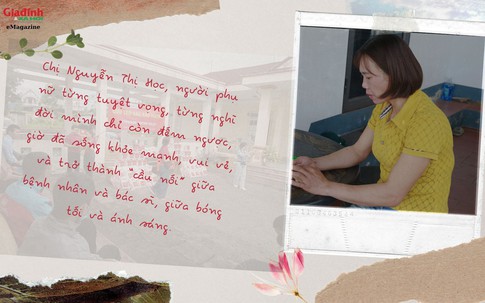 Giadinh
eMagazine
Chị Nguyễn Thị Học, người phụ
nữ từng tuyệt vọng, từng nghĩ
đời mình chỉ còn đếm ngược,
giờ đã sống khỏe mạnh, vui vẻ,
và trở thành "cầu nối" giữa
bệnh nhân và bác sĩ, giữa bóng
tối và ánh sáng.